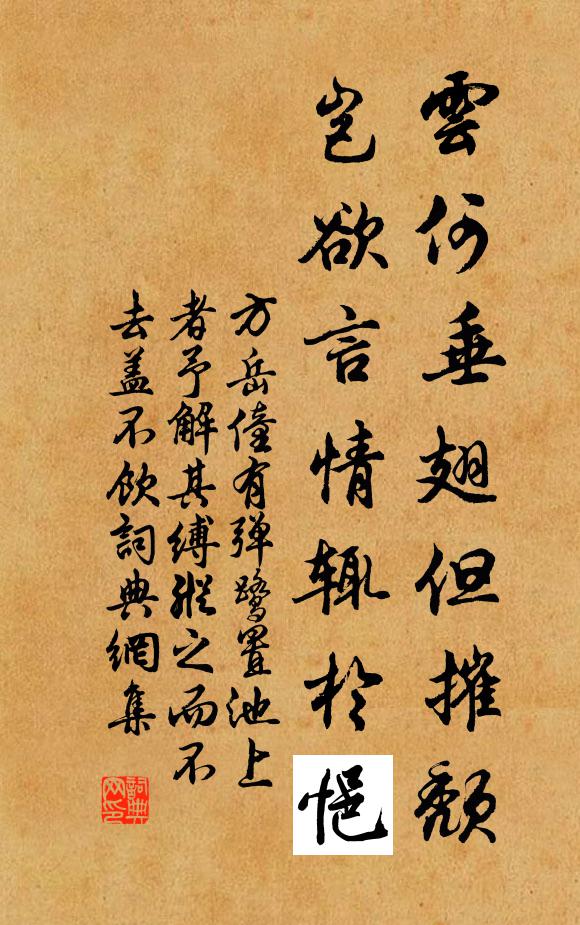 雲何垂翅但摧頹
豈欲言情輒於悒
方岳僮有弹鷺置池上
者予解其縛縱之而不
去盖不飲詞典網集
詞典网印